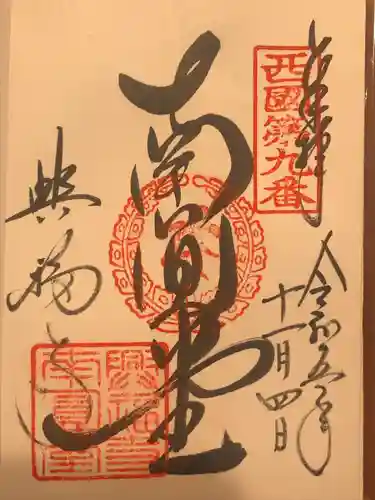 奉拝
西國第九番
令和五年
十一月四日
南円堂
興福寺